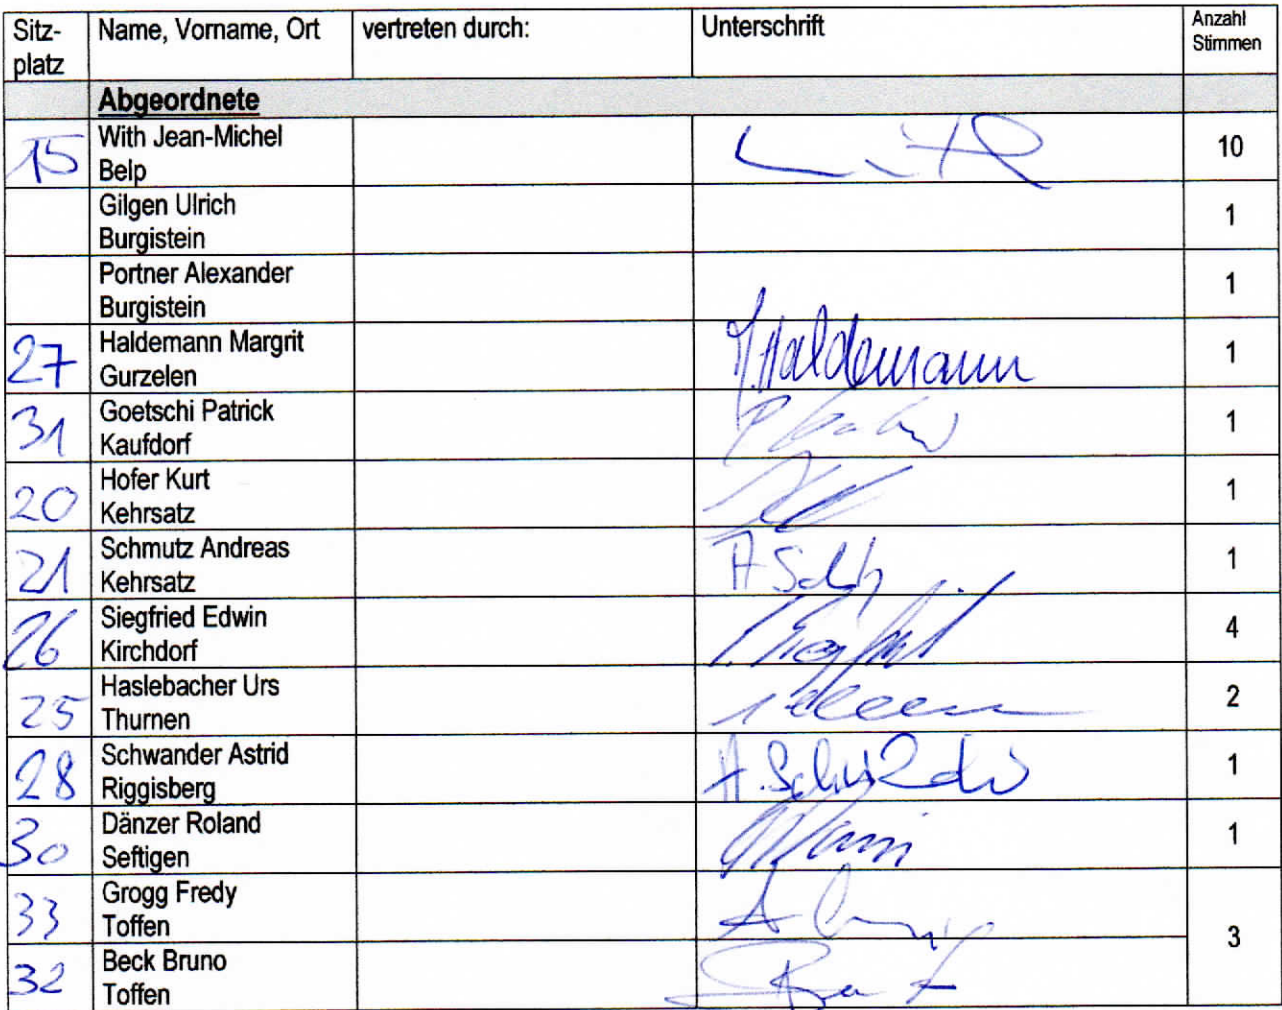 Sitz-
platz
Name, Vorname, Ort
vertreten durch:
Unterschrift
Anzahl
Stimmen
Abgeordnete
15
With Jean-Michel
Belp
10
Gilgen Ulrich
Burgistein
1
Portner Alexander
Burgistein
1
27
Haldemann Margrit
Gurzelen
Haldemann
1
31
Goetschi Patrick
Kaufdorf
1
20
Hofer Kurt
Kehrsatz
1
21
Schmutz Andreas
Kehrsatz
1
26
Siegfried Edwin
Kirchdorf
4
25
Haslebacher Urs
Thurnen
2
28
Schwander Astrid
Riggisberg
1
30
Dänzer Roland
Seftigen
1
33
Grogg Fredy
Toffen
3
32
Beck Bruno
Toffen